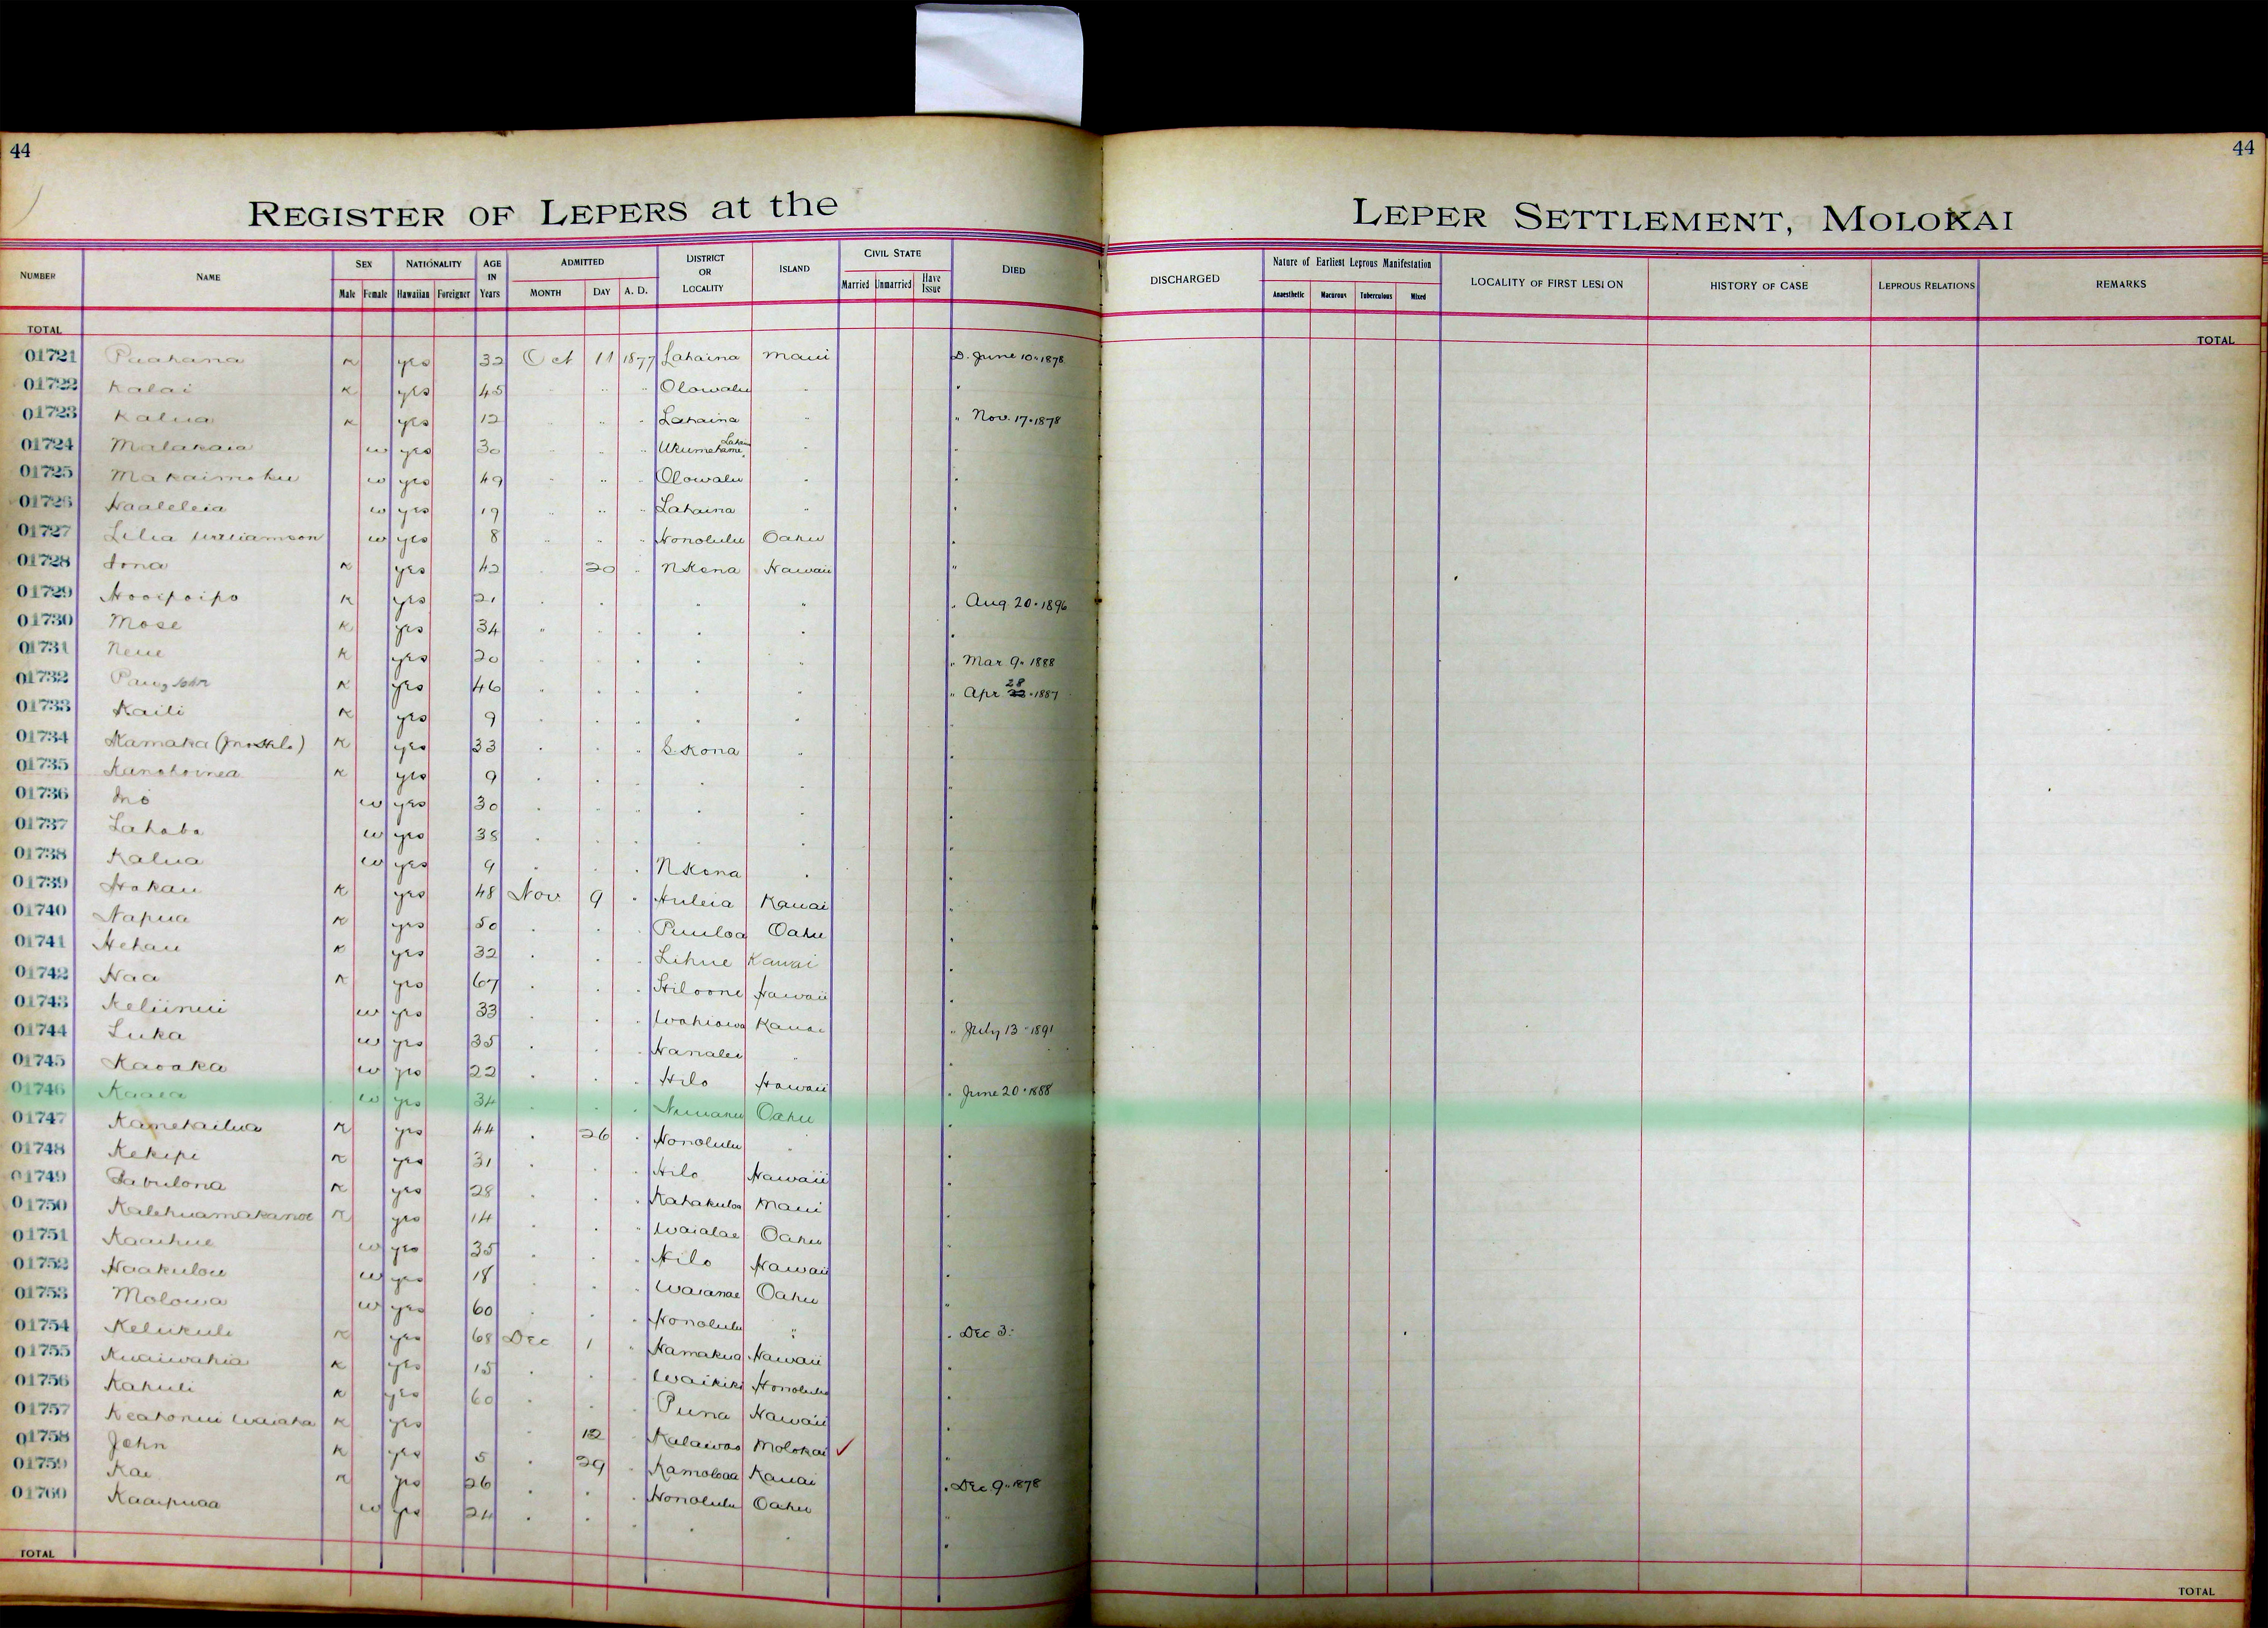 44
44
REGISTER OF LEPERS at the
LEPER SETTLEMENT, MOLOKAI
NUMBER NAME SEX Male Female NATIONALITY Hawaiian Foreigner AGE IN Years ADMITTED MONTH DAY A. D. DISTRICT OR LOCALITY ISLAND CIVIL STATE Married Unmarried Have Issue DIED
DISCHARGED Nature of Earliest Leprous Manifestation Anaesthetic Macurous Tuberculous Mixed LOCALITY OF FIRST LESION HISTORY OF CASE LEPROUS RELATIONS REMARKS
TOTAL
TOTAL
01721 Puahana K yes 32 Oct 11 1877 Lahaina Maui D. June 10 " 1878
01722 Kalai K yes 45 " " " Olowalu " "
01723 Kalua K yes 12 " " " Lahaina " " Nov. 17 " 1878
01724 Malakaia w yes 30 " " " Ukumehame " "
01725 Makaimoku w yes 49 " " " Olowalu " "
01726 Haaleleia w yes 19 " " " Lahaina " "
01727 Lilia Williamson w yes 8 " " " Honolulu Oahu "
01728 Iona K yes 42 " 20 " N Kona Hawaii "
01729 Hooipoipo K yes 21 " " " " " Aug. 20 " 1896
01730 Mose K yes 34 " " " " " "
01731 Neue K yes 20 " " " " " " Mar 9 " 1888
01732 K yes 46 " " " " " " Apr 28 " 1887
01733 Kaili K yes 9 " " " " "
01734 Kamaka K yes 33 " " " S. Kona " "
01735 K yes 9 " " " " " "
01736 w yes 30 " " " " " "
01737 w yes 38 " " " " " "
01738 Kalua w yes 9 " " " N Kona " "
01739 Hokau K yes 48 Nov 9 " Huleia Kauai "
01740 Napua K yes 50 " " " Puuloa Oahu "
01741 Hehau K yes 32 " " " Lihue Kauai "
01742 Naa K yes 67 " " " Hiloone Hawaii "
01743 Keliinui w yes 33 " " " Wahiawa Kauai " July 13 " 1891
01744 Luka w yes 35 " " " Hanalei " "
01745 Kaoaka w yes 22 " " " Hilo Hawaii " June 20 " 1888
01746 Kaaea w yes 34 " " " Nuuanu Oahu "
01747 Kamekailua K yes 44 " 26 " Honolulu " "
01748 Kekipi K yes 31 " " " Hilo Hawaii "
01749 Zabulona K yes 28 " " " Kahakuloa Maui "
01750 Kalehuamakanoe K yes 14 " " " Waialae Oahu "
01751 Kaaihue w yes 35 " " " Hilo Hawaii "
01752 Haakulou w yes 18 " " " Waianae Oahu "
01753 Molowa w yes 60 " " " Honolulu " " Dec 3.
01754 K yes 68 Dec 1 " Hamakua Hawaii "
01755 Kuaiwahia K yes 15 " " " Waikiki Honolulu "
01756 Kahuli K yes 60 " " " Puna Hawaii "
01757 K yes " 12 " Kalawao Molokai ✓ "
01758 John K yes 5 " 29 " Kamoloaa Kauai " Dec 9 " 1878
01759 Kae K yes 26 " " " Honolulu Oahu "
01760 Kaaipuaa w yes 24 " " " " " "
TOTAL
TOTAL